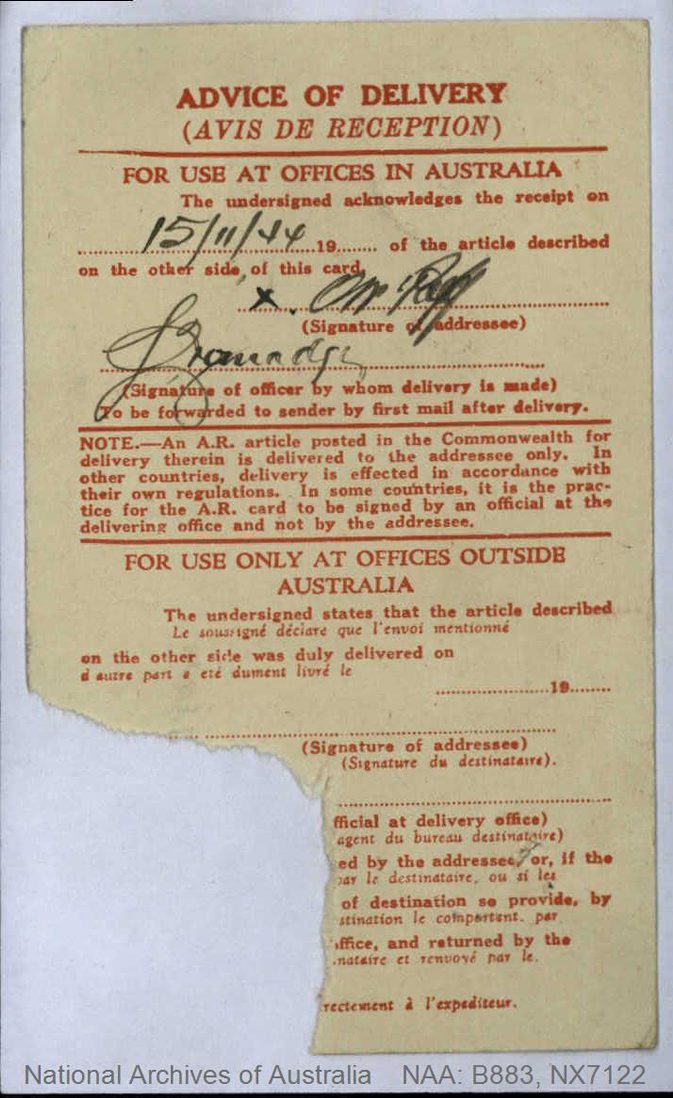 ADVICE OF DELIVERY
(AVIS DE RECEPTION)
FOR USE AT OFFICES IN AUSTRALIA
The undersigned acknowledges the receipt on
15/11/44 19........ of the article described
on the other side of this card.
x.
(Signature of addressee)
(Signature of officer by whom delivery is made)
To be forwarded to sender by first mail after delivery.
NOTE.—An A.R. article posted in the Commonwealth for
delivery therein is delivered to the addressee only. In
other countries, delivery is effected in accordance with
their own regulations. In some countries, it is the prac-
tice for the A.R. card to be signed by an official at the
delivering office and not by the addressee.
FOR USE ONLY AT OFFICES OUTSIDE
AUSTRALIA
The undersigned states that the article described
Le soussigné déclare que l'envoi mentionné
on the other side was duly delivered on
d'autre part a eté dument livré le
19........
(Signature of addressee)
(Signature du destinataire).
fficial at delivery office)
agent du bureau destinataire)
ed by the addressee, or, if the
par le destinataire, ou si les
of destination so provide, by
stination le comportent, par
office, and returned by the
nataire et renvoyé par le.
rectement à l'expediteur.
National Archives of Australia NAA: B883, NX7122